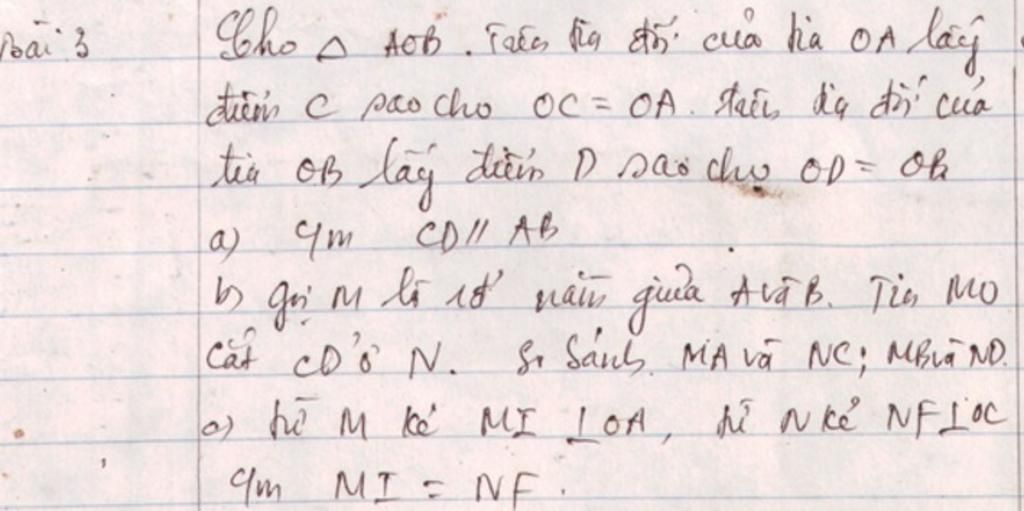 Bài 3 Cho △ AOB. Trên tia đối của tia OA lấy
điểm C sao cho OC = OA. trên tia đối của
tia OB lấy điểm D sao cho OD = OB
a) c/m CD // AB
b) gọi M là 1đ nằm giữa A và B. Tia MO
cắt CD ở N. So Sánh MA và NC; MB và ND.
c) từ M kẻ MI ⊥ OA, từ N kẻ NF ⊥ OC
c/m MI = NF.